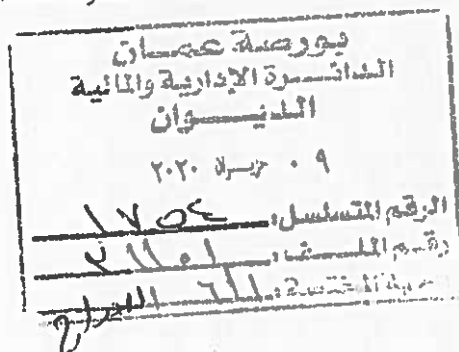 بورصة عمان
الدائرة الإدارية والمالية
الديوان
٠٩ حزيران ٢٠٢٠
الرقم المتسلسل: ١٧٥٤
رقم الملف: ٢١١٥١
الجهة المختصة: الإدراج